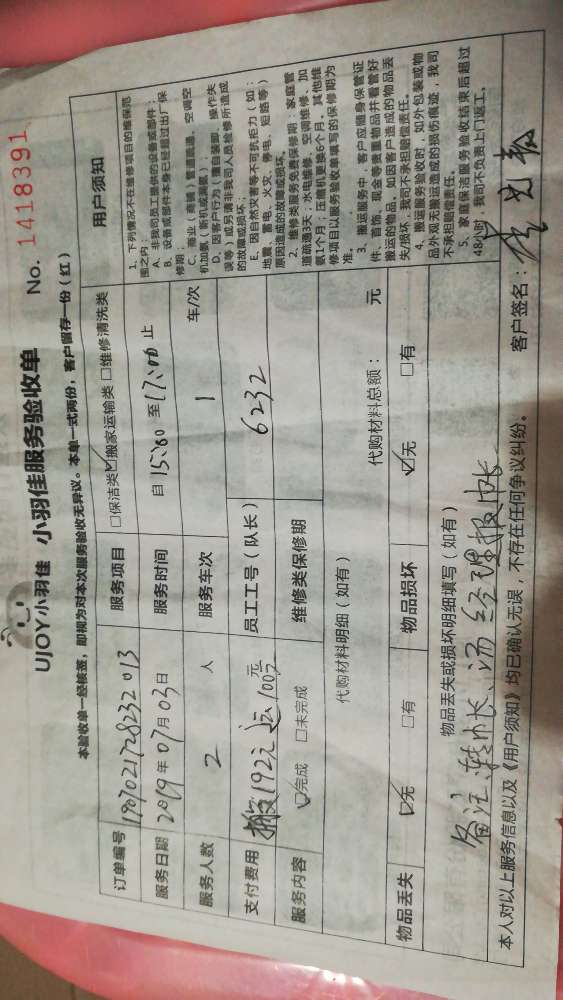 UJOY小羽佳 小羽佳服务验收单 No. 1418391
本验收单一经核签，即视为对本次服务验收无异议。本单一式两份，客户留存一份（红）
订单编号 1907021728232013 服务项目 □保洁类☑搬家运输类 □维修清洗类
服务日期 2019年07月03日 服务时间 自 15:00 至 17:00 止
服务人数 2 人 服务车次 1 车/次
支付费用 搬192元 运100元 元 员工工号（队长） 6232
服务内容 ☑完成 □未完成 维修类保修期
代购材料明细（如有） 代购材料总额： 元
物品丢失 ☑无 □有 物品损坏 ☑无 □有
物品丢失或损坏明细填写（如有）
备注：转帐、汤经理报帐
本人对以上服务信息以及《用户须知》均已确认无误，不存在任何争议纠纷。 客户签名：
用户须知
1、下列情况不在维修项目的维保范
围之内：
A、非我司员工提供的设备或部件；
B、设备或部件本身已经超过出厂保
修期；
C、商业（商铺）管道疏通、空调空
机加氨（新机或满氨）；
D、因客户行为（擅自装卸、操作失
误等）或另请非我司人员检修所造成
的故障或损坏；
E、因自然灾害等不可抗拒力（如：
地震、雷电、火灾、停电、短路等）
原因造成的故障或损坏。
2、维修类服务免费保修期：家庭管
道疏通3天，水电维修、空调维修、加
氨1个月；压缩机更换6个月。其他维
修项目以服务验收单填写的保修期为
准。
3、搬运服务中，客户应随身保管证
件、首饰、现金等贵重物品并看管好
搬运的物品，如因客户造成的物品丢
失/损坏，我司不承担赔偿责任。
4、搬运服务验收时，如外包装或物
品外观无搬运造成的损伤痕迹，我司
不承担赔偿责任。
5、家庭保洁服务验收结束后超过
48小时，我司不负责上门返工。